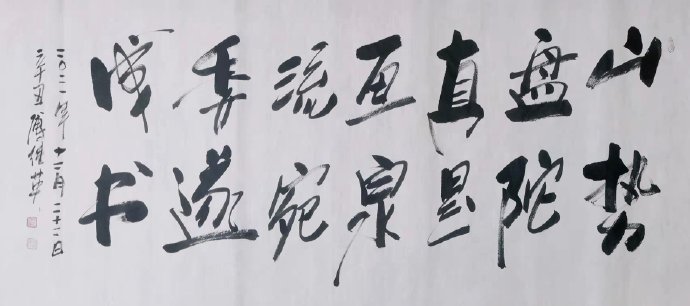 山势
盘陀
真是
画泉
流宛
委遂
成书
二〇二一年十二月二十二日
辛丑